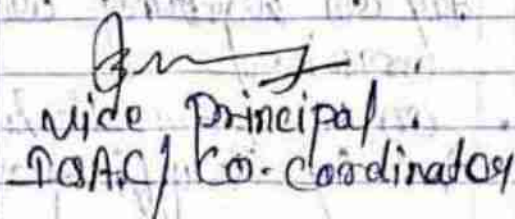 Vice Principal.
IQAC/ Co-Coordinator